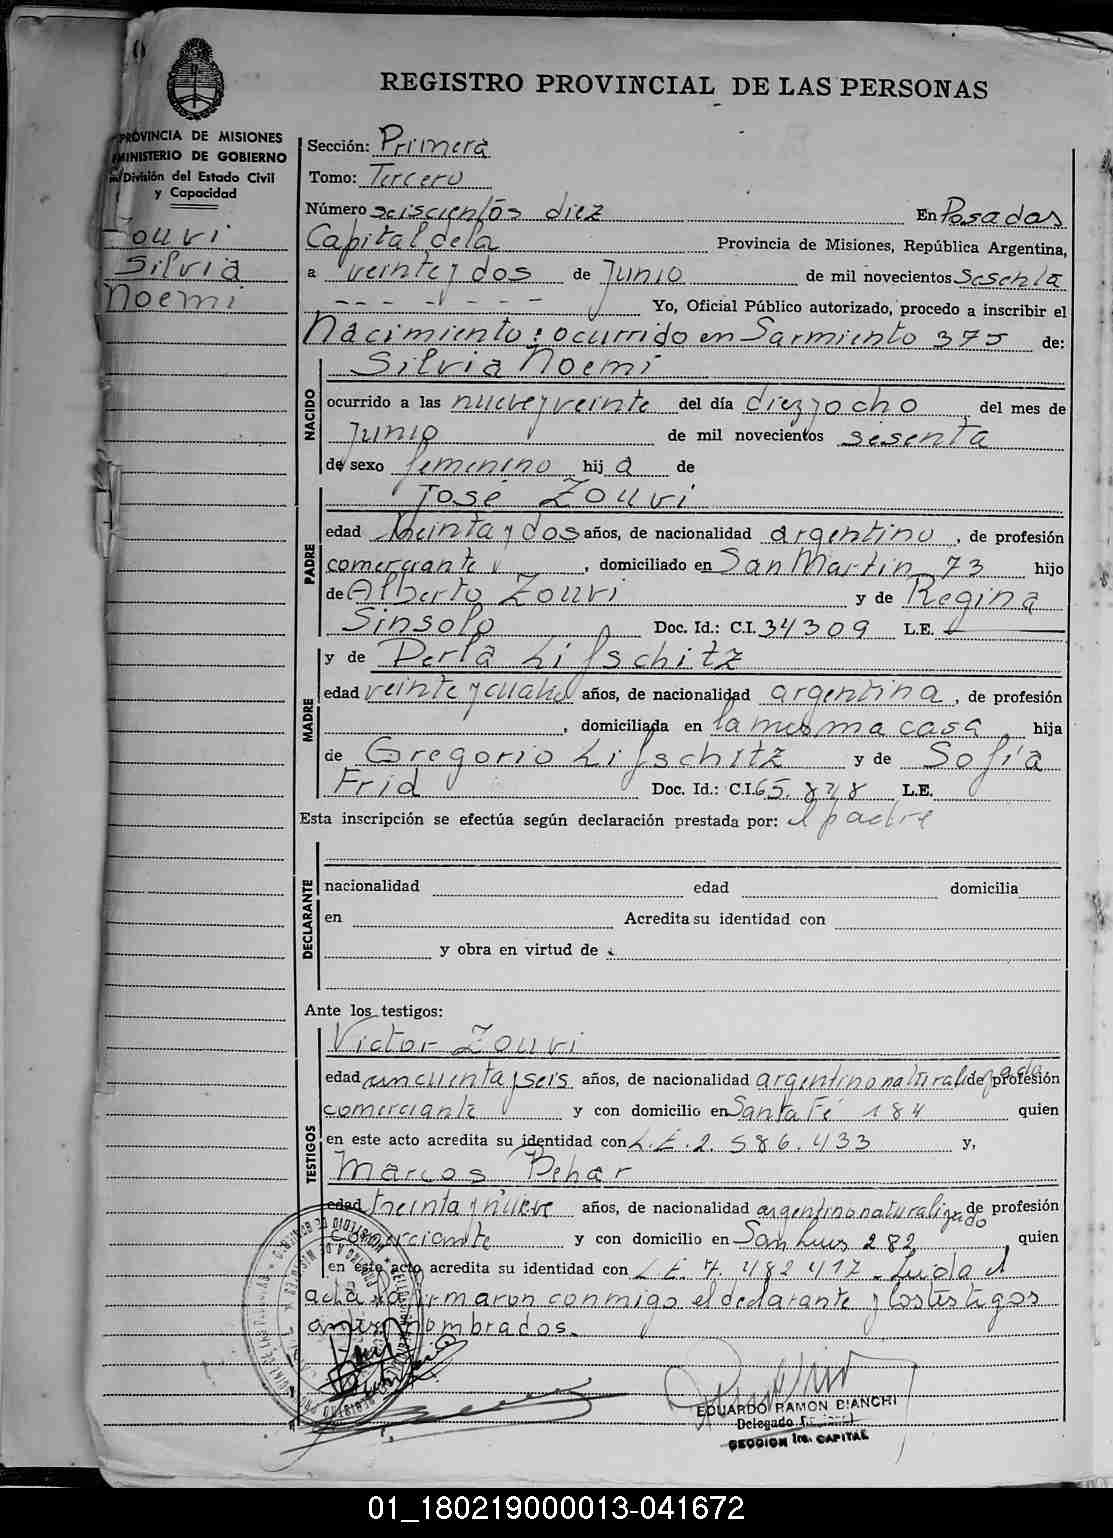 REGISTRO PROVINCIAL DE LAS PERSONAS
PROVINCIA DE MISIONES
MINISTERIO DE GOBIERNO
División del Estado Civil
y Capacidad
Zouvi
Silvia
Noemi
Sección: Primera
Tomo: Tercero
Número seiscientos diez En Posadas
Capital de la Provincia de Misiones, República Argentina,
a veinte y dos de Junio de mil novecientos sesenta
Yo, Oficial Público autorizado, procedo a inscribir el
Nacimiento: ocurrido en Sarmiento 375 de:
NACIDO
Silvia Noemi
ocurrido a las nueve y veinte del día diez y ocho del mes de
Junio de mil novecientos sesenta
de sexo femenino hij a de
PADRE
José Zouvi
edad treinta y dos años, de nacionalidad argentino, de profesión
comerciante, domiciliado en San Martin 73 hijo
de Alberto Zouvi y de Regina
Sinsolo Doc. Id.: C.I. 34309 L.E.
MADRE
y de Perla Lifschitz
edad veinte y cuatro años, de nacionalidad argentina, de profesión
, domiciliada en la misma casa hija
de Gregorio Lifschitz y de Sofía
Frid Doc. Id.: C.I. 65.828 L.E.
Esta inscripción se efectúa según declaración prestada por: el padre
DECLARANTE
nacionalidad edad domicilia
en Acredita su identidad con
y obra en virtud de
Ante los testigos:
TESTIGOS
Victor Zouvi
edad cincuenta y seis años, de nacionalidad argentino naturalizado de profesión
comerciante y con domicilio en Santa Fé 184 quien
en este acto acredita su identidad con L.E. 2.586.433 y,
Marcos Behar
edad treinta y nueve años, de nacionalidad argentino naturalizado de profesión
comerciante y con domicilio en San Luis 282, quien
en este acto acredita su identidad con L.E. 7.482417 - Leida el
acta la firmaron conmigo el declarante y los testigos
antes nombrados.
EDUARDO RAMON BIANCHI
Delegado
SECCION 1ra. CAPITAL
01_180219000013-041672